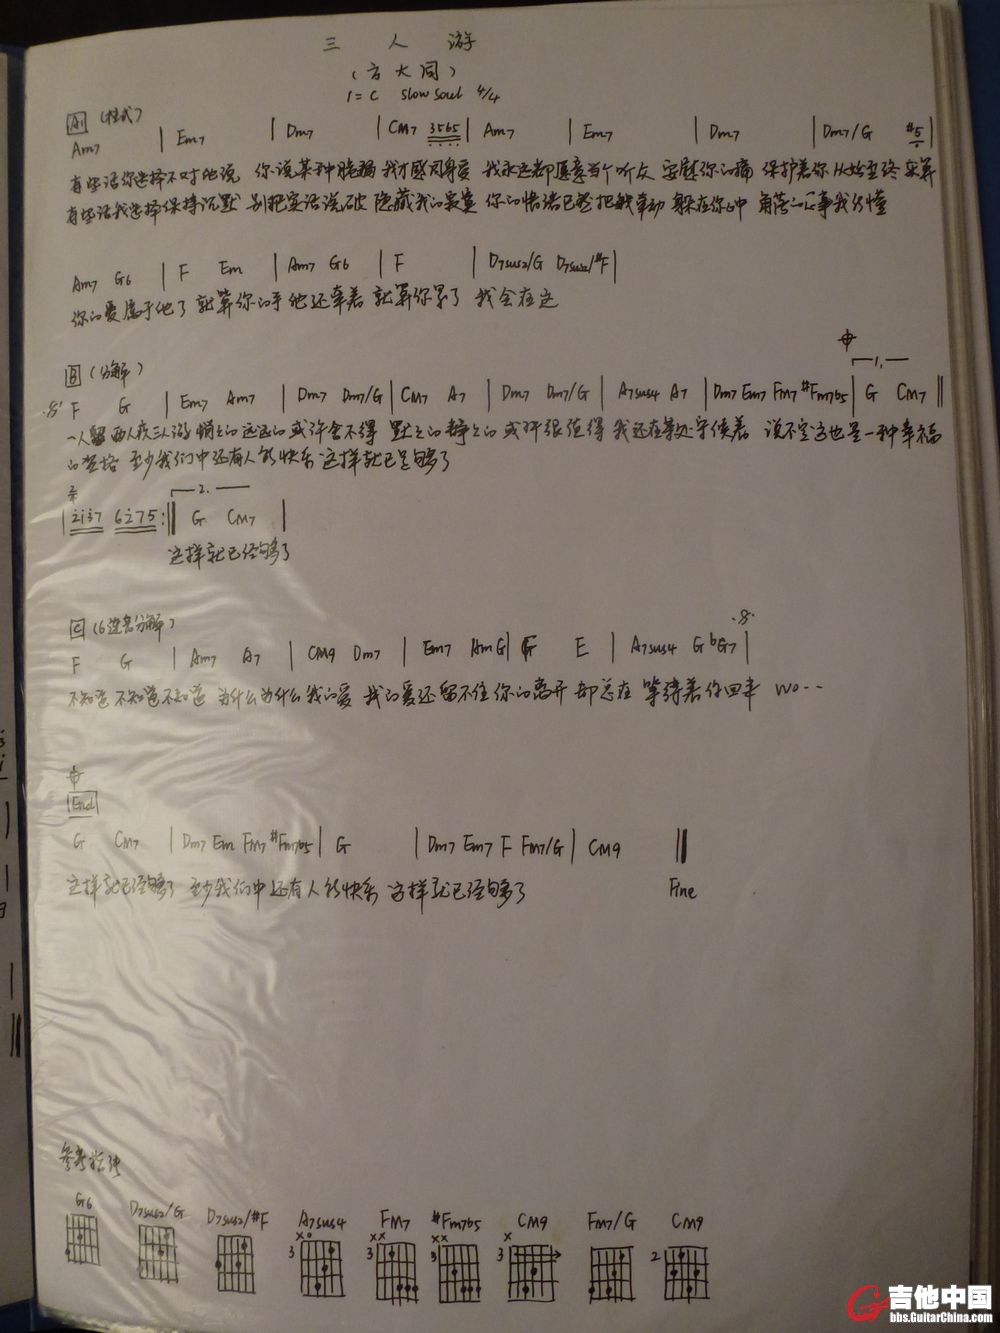 三 人 游
(方大同)
1=C slow soul 4/4
A1 (柱式)
Am7 | Em7 | Dm7 | CM7 3565 | Am7 | Em7 | Dm7 | Dm7/G #5 |
有些话你选择不对他说 你说某种脆弱 我才感同身受 我永远都愿意当个听众 安慰你的痛 保护着你从始至终 就算
有些话我选择保持沉默 别把实话说破 隐藏我的寂寞 你的情绪已经把我牵动 躲在你心中 角落的心事我能懂
Am7 G6 | F Em | Am7 G6 | F | D7sus2/G D7sus2/#F |
你的爱属于他了 就算你的手他还牵着 就算你累了 我会在这
B (分解)
1.
·S· F G | Em7 Am7 | Dm7 Dm7/G | CM7 A7 | Dm7 Dm7/G | A7sus4 A7 | Dm7 Em7 FM7 #Fm7b5 | G CM7 ||
一人留 两人疚 三人游 悄悄的 远远的 或许舍不得 默默的 静静的 或许很值得 我还在某处守候着 说不定这也是一种幸福
的资格 至少我们中还有人能快乐 这样就已足够了
2.
| 2137 6275 :|| G CM7 |
这样就已经够了
C (6连音分解)
·S·
F G | Am7 A7 | CM9 Dm7 | Em7 Am G | F E | A7sus4 G bG7 |
不知道 不知道 不知道 为什么 为什么 我的爱 我的爱还留不住 你的离开 却总在 等待着你回来 wo...
End
G CM7 | Dm7 Em FM7 #Fm7b5 | G | Dm7 Em7 F FM7/G | CM9 ||
这样就已经够了 至少我们中还有人能快乐 这样就已经够了 Fine
参考指法
G6 D7sus2/G D7sus2/#F A7sus4 FM7 #Fm7b5 CM9 Fm7/G CM9
x o xx xx x
3 3 3 3 2
吉他中国
bbs.GuitarChina.com